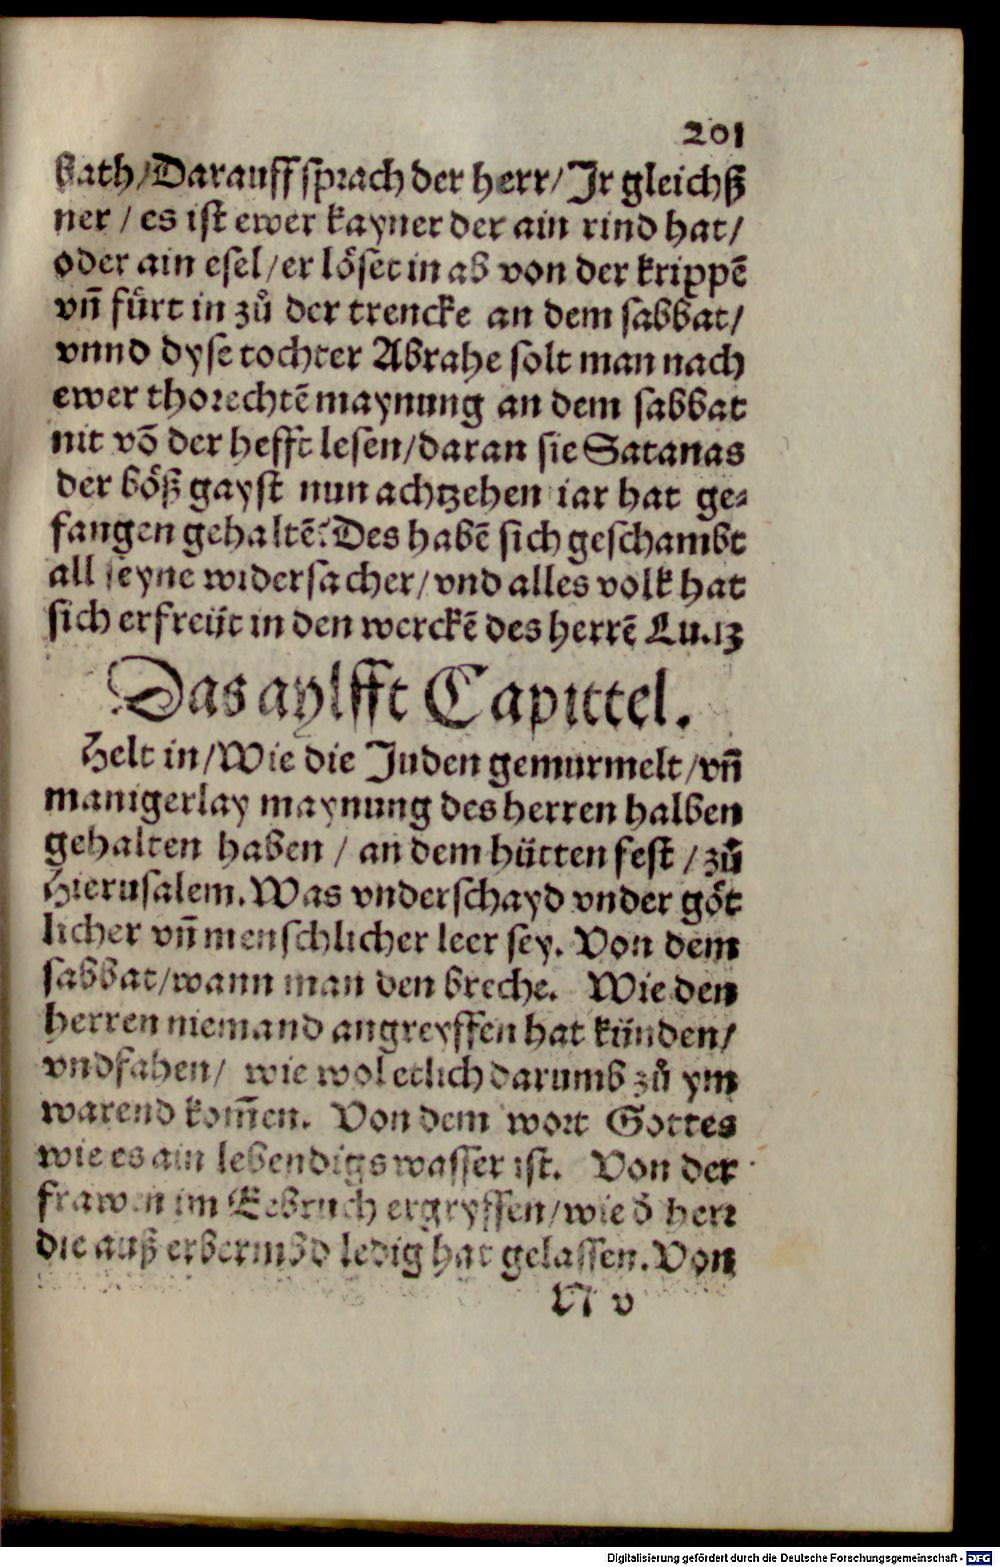 201
bath/Darauff sprach der herr/Jr gleichß
ner / es ist ewer kayner der ain rind hat/
oder ain esel/er löset in ab von der krippē
vñ fürt in zů der trencke an dem sabbat/
vnnd dyse tochter Abrahe solt man nach
ewer thorechtē maynung an dem sabbat
nit vō der hefft lesen/daran sie Satanas
der böß gayst nun achtzehen iar hat ge⸗
fangen gehaltē? Des habē sich geschambt
all seyne widersacher/vnd alles volk hat
sich erfreüt in den werckē des herrē Lu.13
Das aylfft Capittel.
Helt in/Wie die Juden gemurmelt/vñ
manigerlay maynung des herren halben
gehalten haben / an dem hütten fest / zů
Hierusalem. Was vnderschayd vnder göt
licher vñ menschlicher leer sey. Von dem
sabbat/wann man den breche. Wie den
herren niemand angreyffen hat künden/
vndfahen/ wie wol etlich darumb zů ym
warend kom̄en. Von dem wort Gottes
wie es ain lebendigs wasser ist. Von der
frawen im Eebruch ergryffen/wie d̄ herr
die auß erbermbd ledig hat gelassen. Von
N v
Digitalisierung gefördert durch die Deutsche Forschungsgemeinschaft - DFG